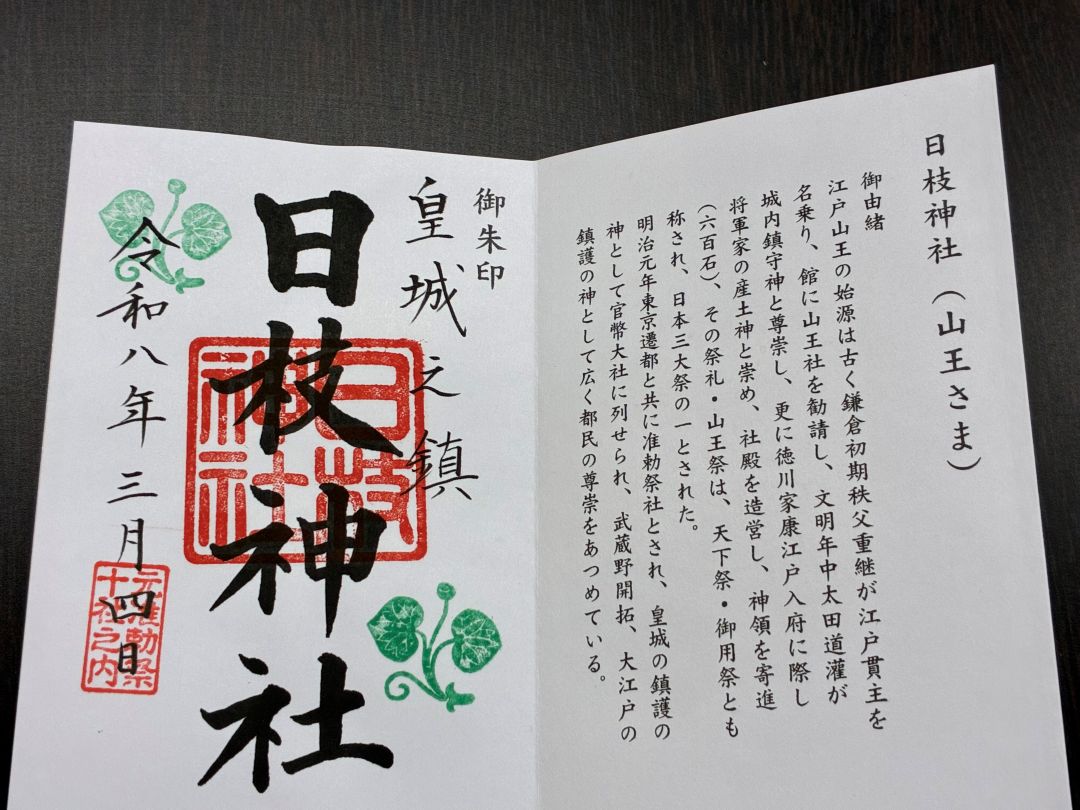 日枝神社(山王さま)
御由緒
江戸山王の始源は古く鎌倉初期秩父重継が江戸貫主を
名乗り、館に山王社を勧請し、文明年中太田道灌が
城内鎮守神と尊崇し、更に徳川家康江戸入府に際し
将軍家の産土神と崇め、社殿を造営し、神領を寄進
(六百石)、その祭礼・山王祭は、天下祭・御用祭とも
称され、日本三大祭の一とされた。
明治元年東京遷都と共に准勅祭社とされ、皇城の鎮護の
神として官幣大社に列せられ、武蔵野開拓、大江戸の
鎮護の神として広く都民の尊崇をあつめている。
御朱印
皇城之鎮
日枝神社
日枝
神社
令和八年三月四日
元准勅祭
十社之内